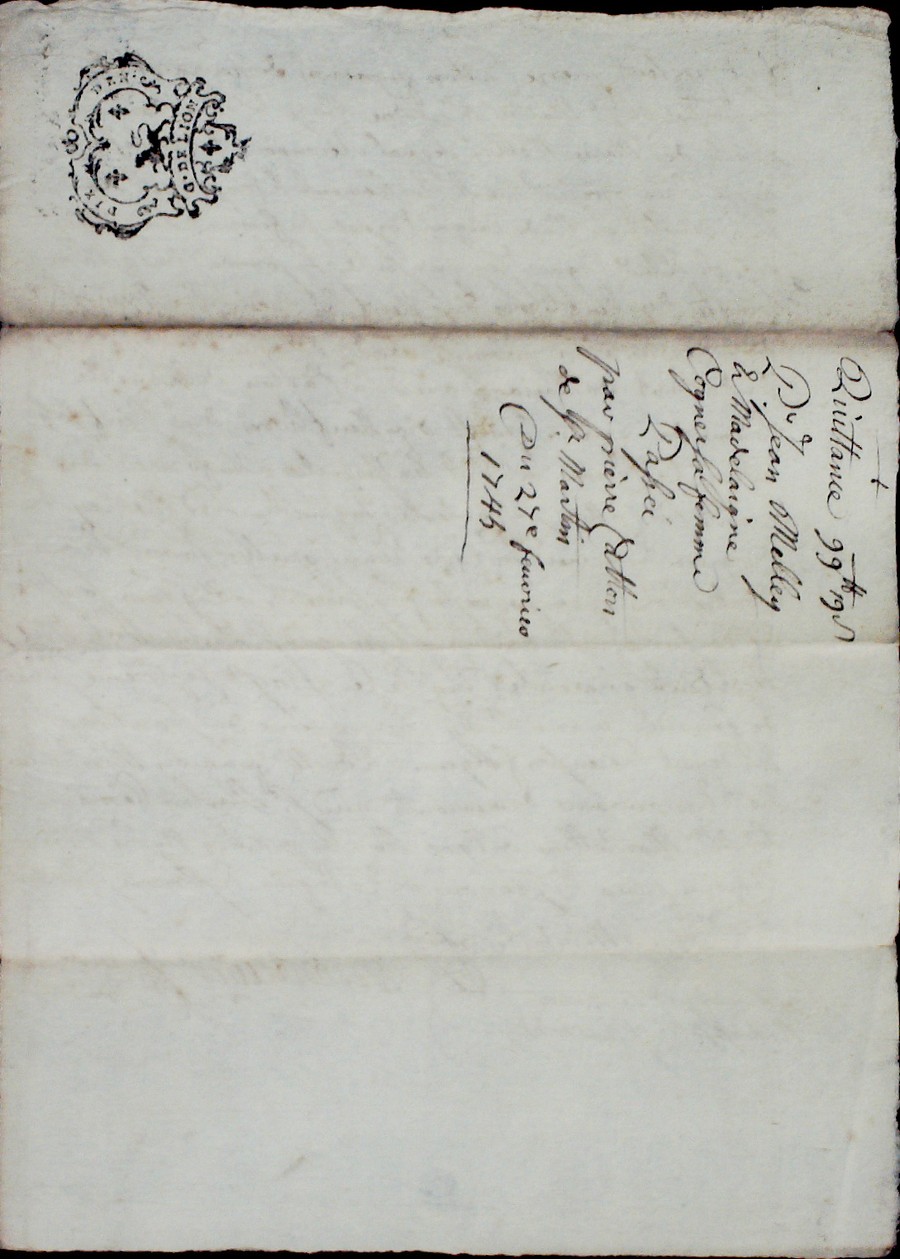 G. DE LION
DIX DEN.
+
Quittance 99tt 19s
Pr Jean Melley
& Madelaigne
Cogner sa femme
Passé
par pierre
de St Martin
Du 27e feuvrier
1745